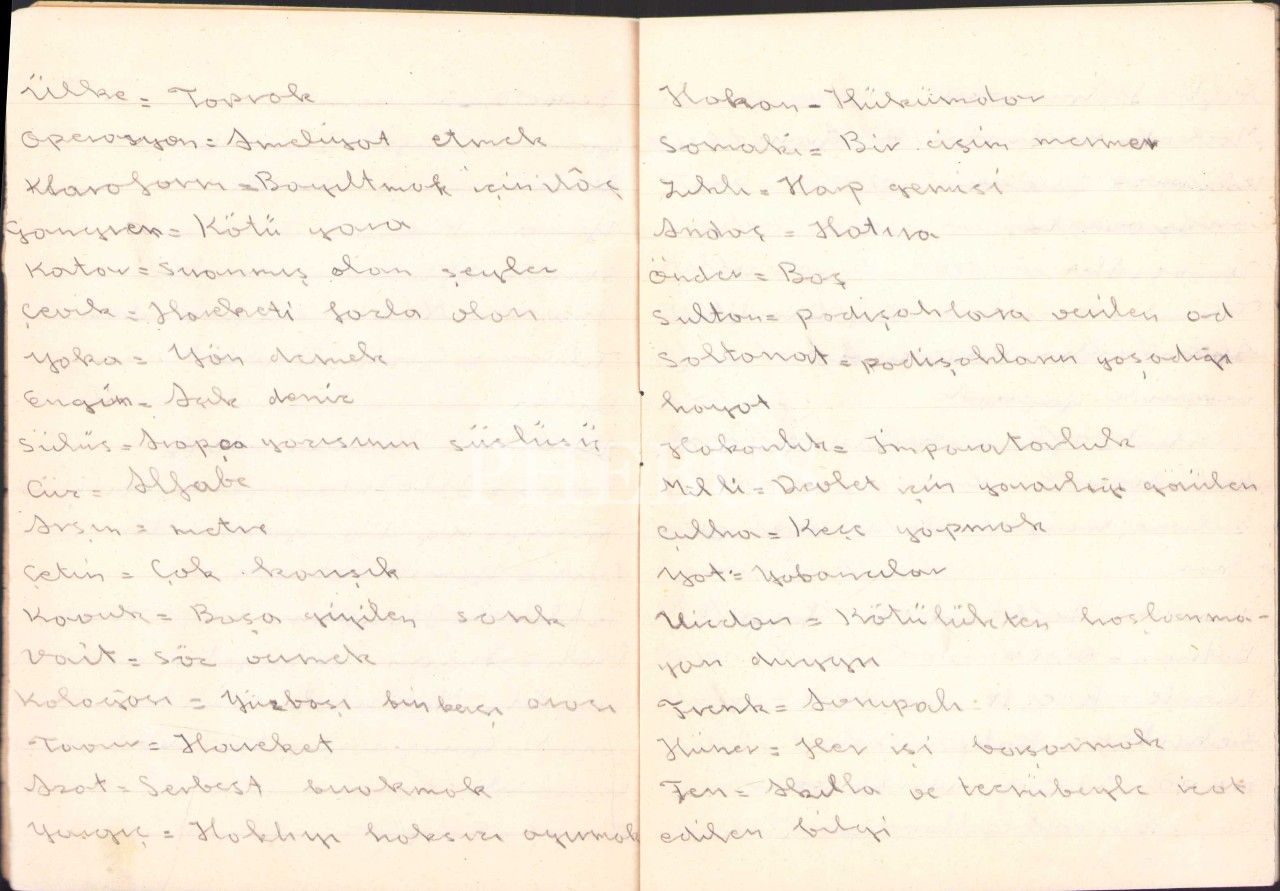 Ülke = Toprak
Operasyon = Ameliyat etmek
Kloroform = Bayıltmak için ilâç
Gangren = Kötü yara
Katar = Sıranmış olan şeyler
Çevik = Hareketi fazla olan
Yaka = Yön demek
Engin = Açık deniz
Sülüs = Arapça yazısının süslüsü
Cüz = Alfabe
Arşın = metre
Çetin = Çok karışık
Kavuk = Başa giyilen sarık
Vait = Söz vermek
Kolağası = Yüzbaşı binbaşı arası
Tavır = Hareket
Azat = Serbest bırakmak
Yargıç = Haklıyı haksızı ayırmak
Hakan = Hükümdar
Somaki = Bir cisim mermer
Zırhlı = Harp gemisi
Andaç = Hatıra
Önder = Baş
Sultan = padişahlara verilen ad
Saltanat = padişahların yaşadığı
hayat
Hakanlık = İmparatorluk
Milli = Devlet için yararlığı görülen
Çulha = Keçe yapmak
Yat = Yabancılar
Vicdan = Kötülükten hoşlanma-
yan duygu
Frenk = Avrupalı
Hüner = Her işi başarmak
Fen = Akılla ve tecrübeyle icat
edilen bilgi